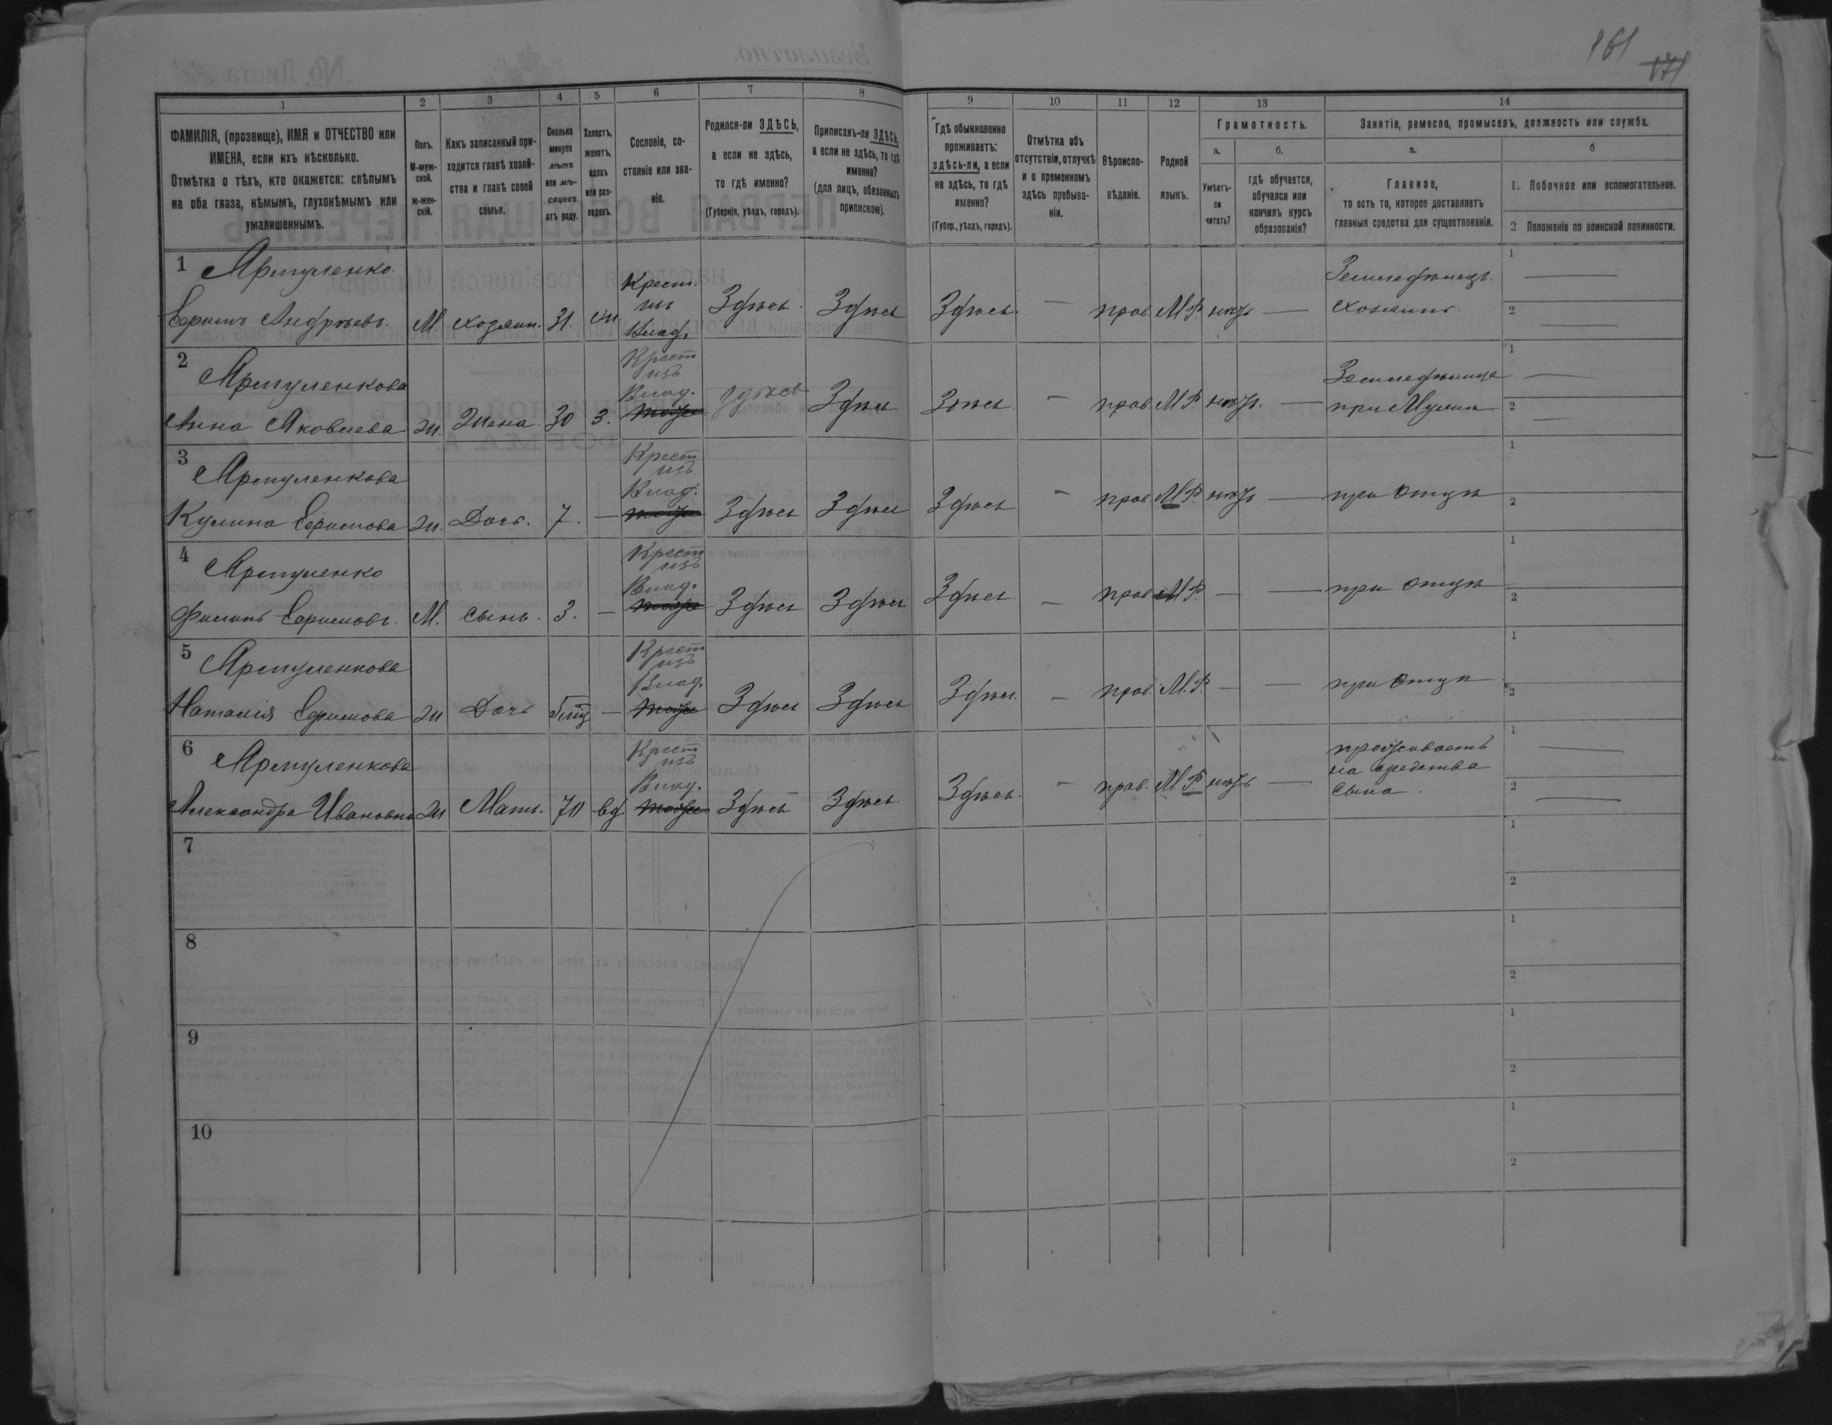 161
171
1 2 3 4 5 6 7 8 9 10 11 12 13 14
ФАМИЛІЯ, (прозвище), ИМЯ и ОТЧЕСТВО или ИМЕНА, если ихъ нѣсколько.
Отмѣтка о тѣхъ, кто окажется: слѣпымъ на оба глаза, нѣмымъ, глухонѣмымъ или умалишеннымъ.
Полъ. М-муж-ской. Ж-жен-скій.
Какъ записанный при-ходится главѣ хозяй-ства и главѣ своей семьи.
Сколько минуло лѣтъ или мѣ-сяцевъ отъ роду.
Холостъ, женатъ, вдовъ или раз-веденъ.
Сословіе, со-стояніе или зва-ніе.
Родился-ли ЗДѢСЬ, а если не здѣсь, то гдѣ именно? (Губернія, уѣздъ, городъ).
Приписанъ-ли ЗДѢСЬ, а если не здѣсь, то гдѣ именно? (для лицъ, обязанныхъ припискою).
Гдѣ обыкновенно проживаетъ: здѣсь-ли, а если не здѣсь, то гдѣ именно? (Губер., уѣздъ, городъ).
Отмѣтка объ отсутствіи, отлучкѣ и о временномъ здѣсь пребыва-ніи.
Вѣроиспо-вѣданіе.
Родной языкъ.
Грамотность.
а. Умѣетъ-ли читать?
б. гдѣ обучается, обучался или кончилъ курсъ образованія?
Занятіе, ремесло, промыселъ, должность или служба.
а. Главное, то есть то, которое доставляетъ главныя средства для существованія.
б
1. Побочное или вспомогательное.
2. Положеніе по воинской повинности.
1 Ярмуленко Крест. изъ Земледѣлецъ 1
Ефимъ Андрѣевъ. М. хозяин. 31. Влад. Здѣсь Здѣсь Здѣсь — прав. М.Р. нѣтъ — хозяинъ 2
2 Ярмуленкова Крест изъ Земледѣлица 1
Анна Яковлева Ж. Жена 30 З. Влад. здѣсь Здѣсь Здѣсь — прав. М.Р. нѣтъ — при Мужѣ 2
3 Ярмуленкова Крест изъ 1
Кулина Ефимова Ж. Дочь. 7. — Влад. Здѣсь Здѣсь Здѣсь — прав. М.Р. нѣтъ — при отцѣ 2
4 Ярмуленко Крест изъ 1
Филипъ Ефимовъ. М. сынъ. 3. — Влад. Здѣсь Здѣсь Здѣсь — прав. М.Р. — — при отцѣ 2
5 Ярмуленкова Крест изъ 1
Наталія Ефимова Ж Дочь — Влад. Здѣсь Здѣсь Здѣсь — прав. М.Р. — — при отцѣ 2
6 Ярмуленкова Крест изъ проживаетъ 1
на средства
Александра Ивановна Ж Мать. 70 вд. Влад. Здѣсь Здѣсь Здѣсь. — прав. М.Р. нѣтъ — сына. 2
7 1
2
8 1
2
9 1
2
10 1
2